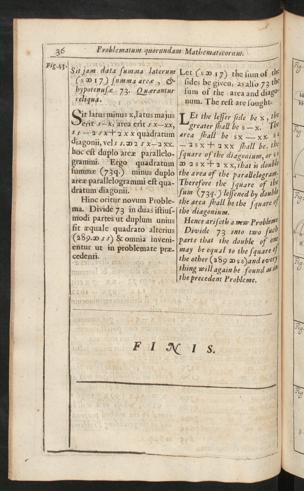 36
Problematum quorundam Mathematicorum.
Fig. 43.
Sit jam data summa laterum
(s ∞ 17) summa areæ, &
hypotenusæ. 73. Quærantur
reliqua.
Sit latus minus x, latus majus
erit s—x, area erit sx—xx,
ss—2sx+2xx quadratum
diagonii, vel ss ∞ 2sx—2xx.
hoc est duplo areæ parallelo-
grammi. Ergo quadratum
summæ (73q.) minus duplo
areæ parallelogrammi est qua-
dratum diagonii.
Hinc oritur novum Proble-
ma. Divide 73 in duas istius-
modi partes ut duplum unius
sit æquale quadrato alterius
(289 ∞ ss) & omnia inveni-
entur ut in problemate præ-
cedenti.
Let (s ∞ 17) the sum of the
sides be given, as also 73 the
sum of the area and diago-
num. The rest are sought.
Let the lesser side be x, the
greater shall be s—x. The
area shall be sx—xx
—2sx+2xx shall be, the
square of the diagonium, or
∞ 2sx+2xx, that is double
the area of the parallelogram.
Therefore the square of the
sum (73q.) lessened by double
the area shall be the square of
the diagonium.
Hence ariseth a new Probleme
Divide 73 into two such
parts that the double of one
may be equal to the square of
the other (289 ∞ ss) and every
thing will again be found as in
the precedent Probleme.
FINIS.